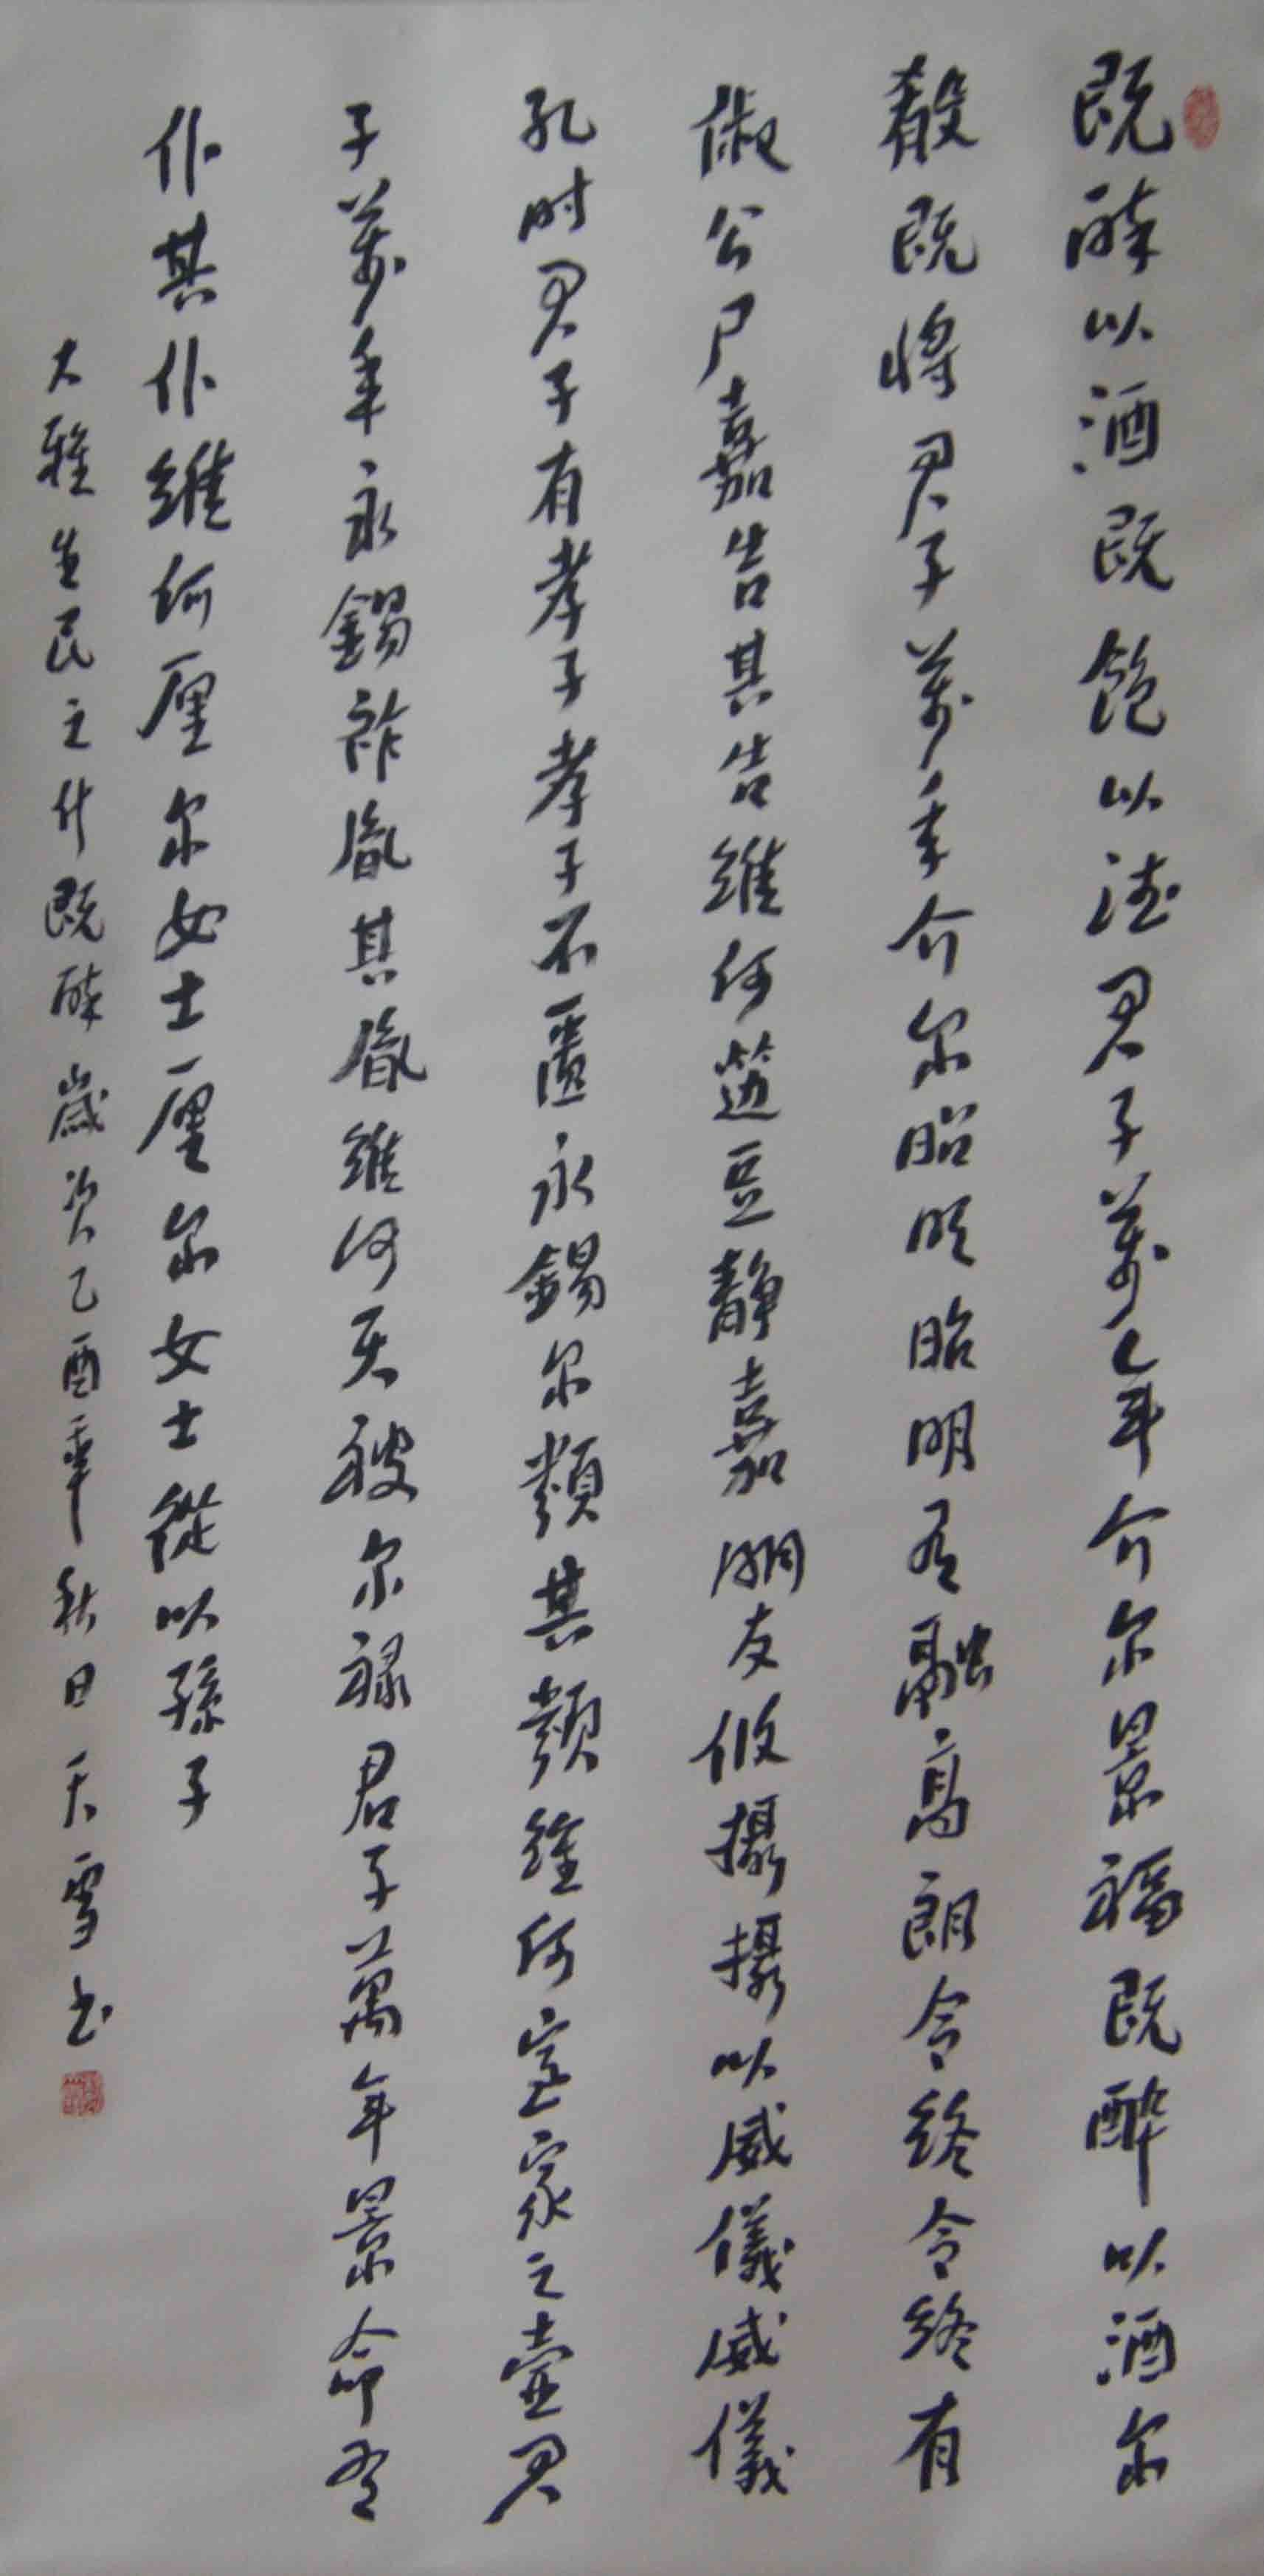 既醉以酒既飽以德君子萬年介尔景福既醉以酒尔
殽既将君子萬年介尔昭明昭明有融高朗令終令終有
俶公尸嘉告其告維何笾豆靜嘉朋友攸攝攝以威儀威儀
孔时君子有孝子孝子不匱永錫尔類其類維何室家之壼君
子萬年永錫祚胤其胤維何天被尔禄君子萬年景命有
仆其仆維何厘尔女士厘尔女士從以孫子
大雅生民之什既醉歲次乙酉年秋日天雪书